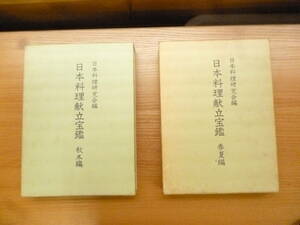 日本料理研究会編
日本料理献立宝鑑
秋冬編
日本料理研究会編
日本料理献立宝鑑
春夏編